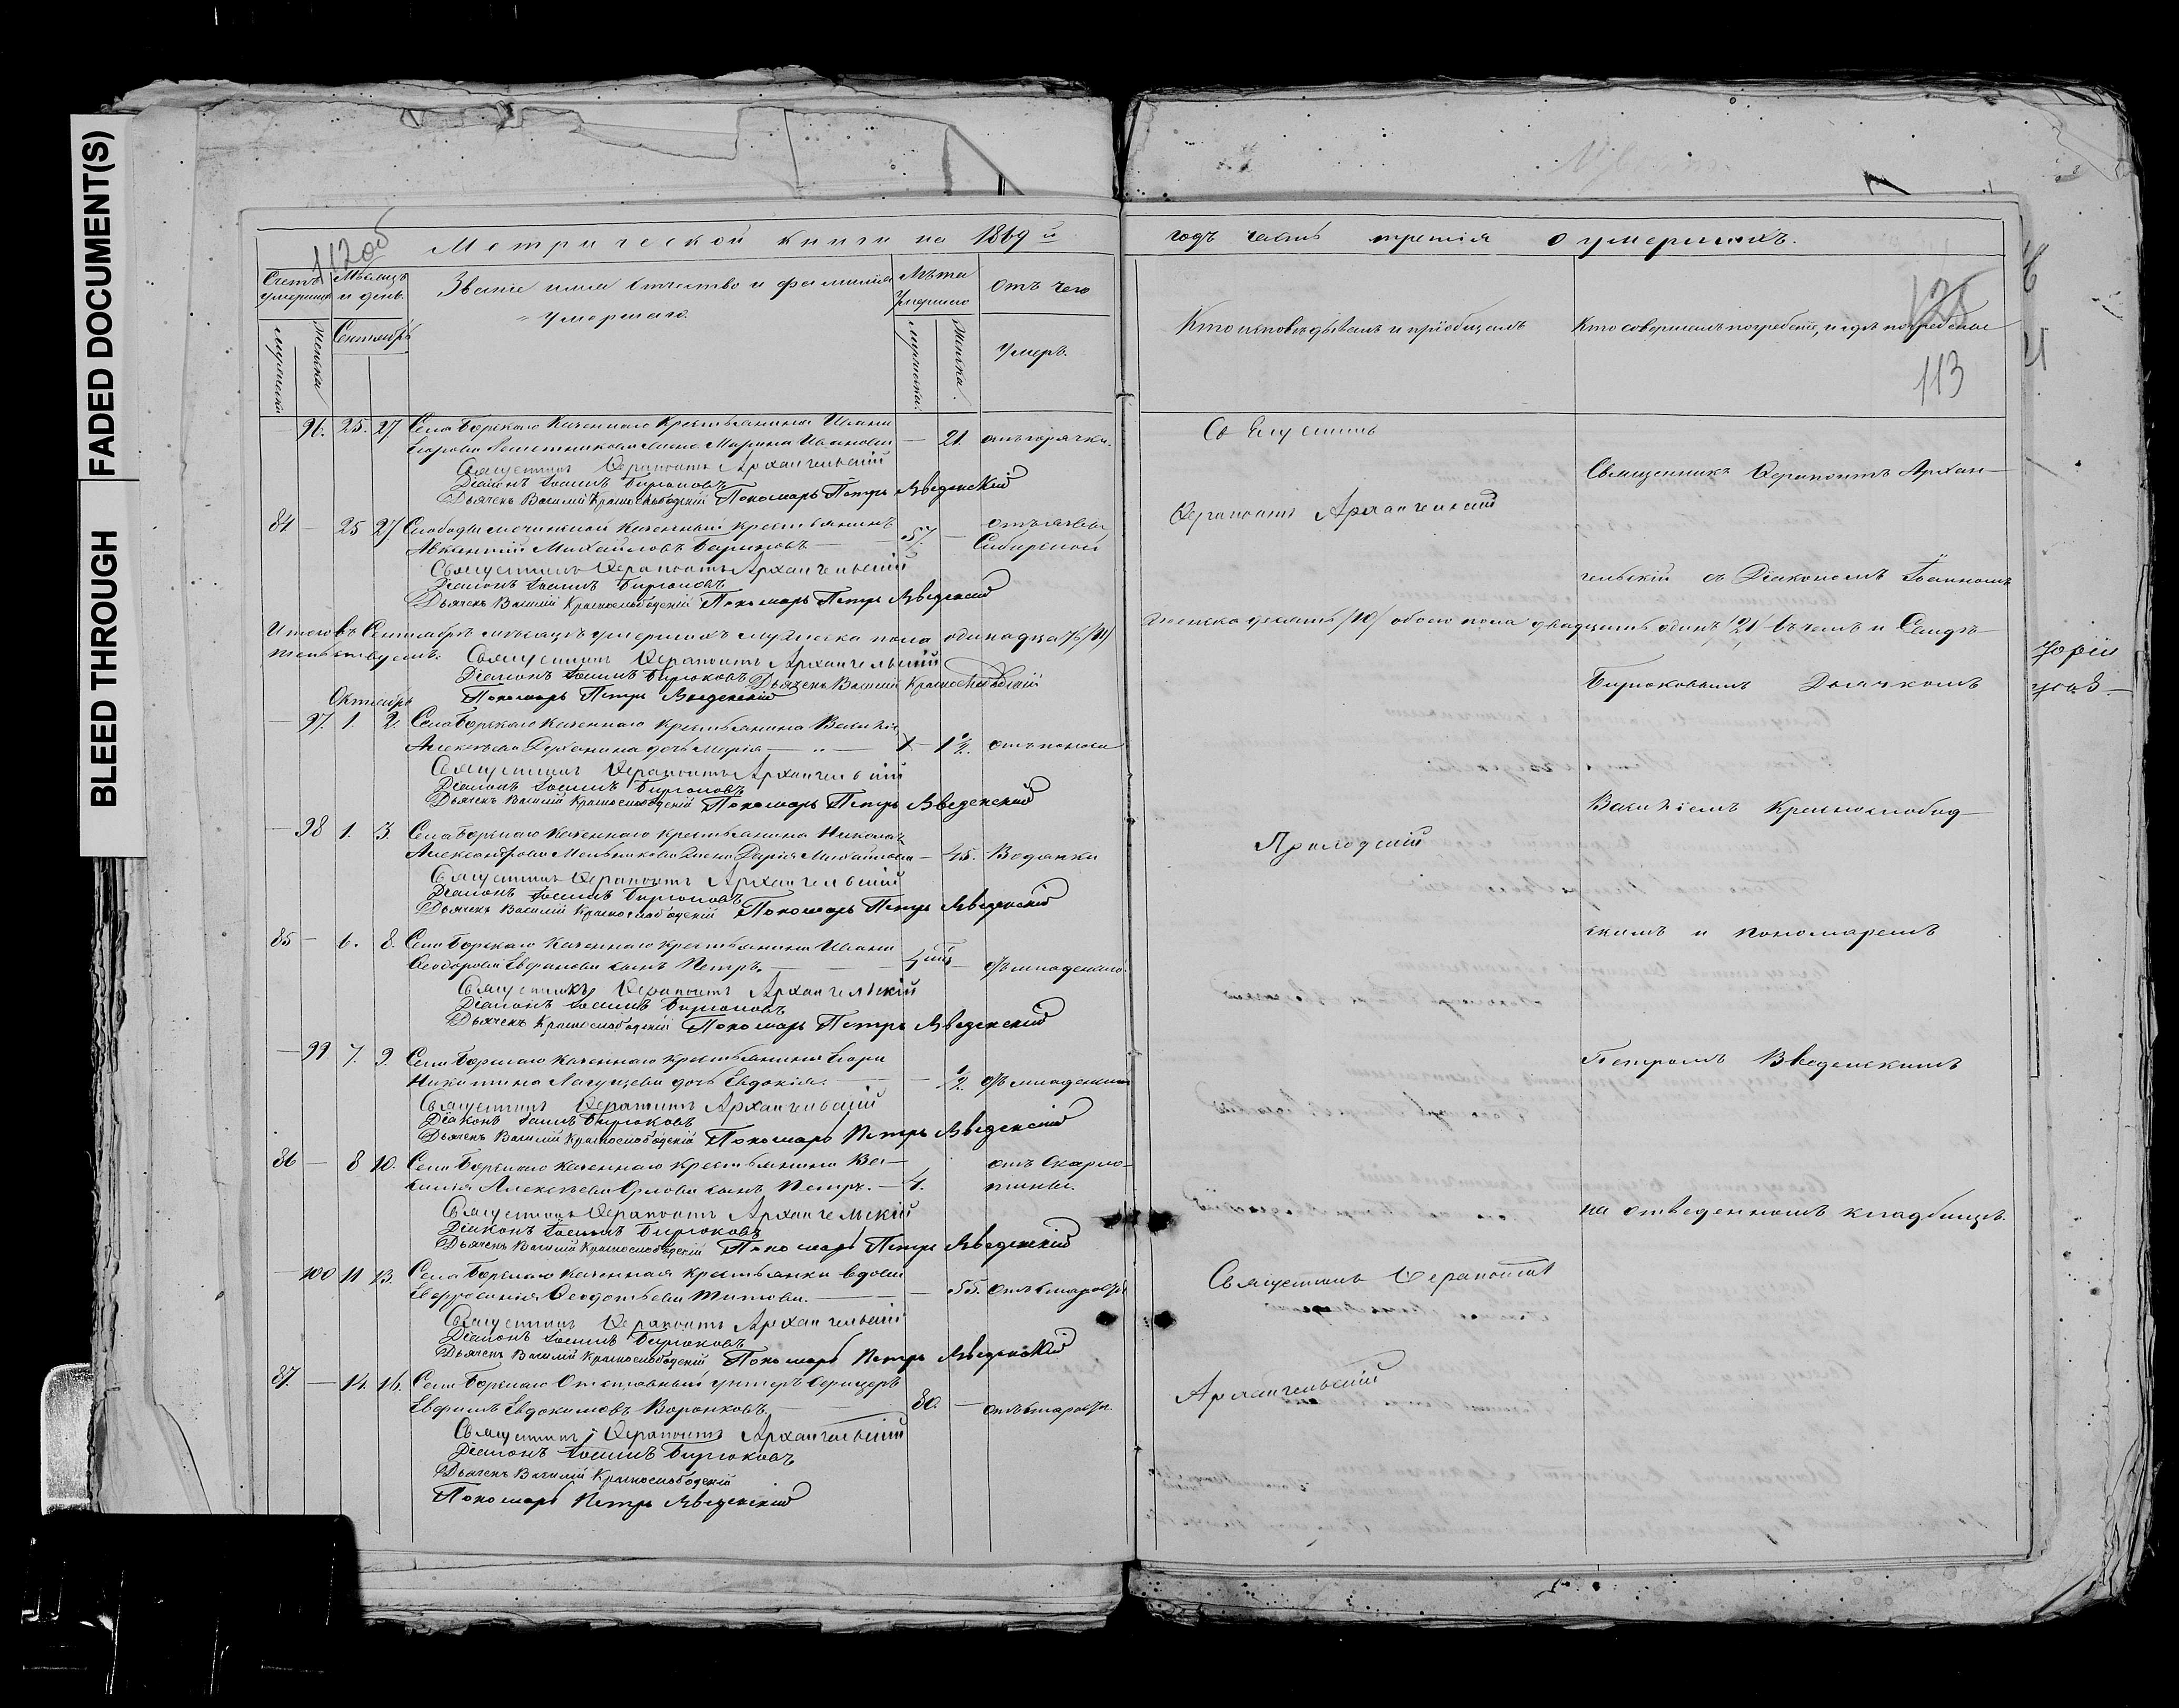 BLEED THROUGH
FADED DOCUMENT(S)
112об
Метрической книги на 1869й
Счетъ умершихъ
Мѣсяцъ и день.
Званіе имя Отчество и фамилія
умершаго.
Лѣта Умершаго
Отъ чего
умеръ.
Мужеска
Женска
Сентябрь
Мужеска.
Женска.
96. 25. 27 Села Борскаго Казеннаго Крестьянина Ивана
Егорова жена Марина Иванова — 21. отъ горячки.
Священникъ Ѳерапонтъ Архангельскій
Діаконъ Іоаннъ Бирюковъ
Дьячекъ Василій Краснослободскій Пономарь Петръ Введенскій
84 — 25 27 Слободы казенный крестьянинъ
Михайловъ Бариновъ — 57. — отъ язвы
Сибирской
Священникъ Ѳерапонтъ Архангельскій
Діаконъ Іоаннъ Бирюковъ
Дьячекъ Василій Краснослободскій Пономарь Петръ Введенскій
Итого въ Сентябрѣ мѣсяцѣ умершихъ мужеска пола одинадцать /11/
Священникъ Ѳерапонтъ Архангельскій
Діаконъ Іоаннъ Бирюковъ Дьячекъ Василій Краснослободскій
Октябрь Пономарь Петръ Введенскій
— 97. 1. 2. Села Борскаго Казеннаго Крестьянина Василія
Алексѣева дочь Марія — 1 ½. отъ поноса
Священникъ Ѳерапонтъ Архангельскій
Діаконъ Іоаннъ Бирюковъ
Дьячекъ Василій Краснослободскій Пономарь Петръ Введенскій
— 98 1. 3. Села Борскаго Казеннаго крестьянина Николая
Александрова Мельникова жена Дарія Михайлова — 45. Водянки
Священникъ Ѳерапонтъ Архангельскій
Діаконъ Іоаннъ Бирюковъ
Дьячекъ Василій Краснослободскій Пономарь Петръ Введенскій
85 — 6. 8. Села Борскаго Казеннаго крестьянина Ивана
Ѳеодорова сынъ Петръ. —
Священникъ Ѳерапонтъ Архангельскій
Діаконъ Іоаннъ Бирюковъ
Дьячекъ Краснослободскій Пономарь Петръ Введенскій
— 99 7. 9. Села Борскаго Казеннаго крестьянина Егора
Никитина дочь Евдокія. — ½.
Священникъ Ѳерапонтъ Архангельскій
Діаконъ Іоаннъ Бирюковъ
Дьячекъ Василій Краснослободскій Пономарь Петръ Введенскій
86 — 8 10. Села Борскаго Казеннаго крестьянина Ва-
силія Алексѣева Орлова сынъ Петръ. — 1. отъ Скарла-
тины.
Священникъ Ѳерапонтъ Архангельскій
Діаконъ Іоаннъ Бирюковъ
Дьячекъ Василій Краснослободскій Пономарь Петръ Введенскій
— 100 11 13. Села Борскаго Казенная крестьянка вдова
Евфросинія Ѳеодотьева Титова. — 55. отъ старости
Священникъ Ѳерапонтъ Архангельскій
Діаконъ Іоаннъ Бирюковъ
Дьячекъ Василій Краснослободскій Пономарь Петръ Введенскій
87. — 14. 16. Села Борскаго Отставный унтеръ Офицеръ
Ефимъ Евдокимовъ Воронковъ 80. — отъ старости.
Священникъ Ѳерапонтъ Архангельскій
Діаконъ Іоаннъ Бирюковъ
Дьячекъ Василій Краснослободскій
Пономарь Петръ Введенскій
годъ часть третія о умершихъ.
Кто исповѣдывалъ и пріобщалъ
Кто совершалъ погребеніе, и гдѣ погребены
128
113
Священникъ
Священникъ Ѳерапонтъ Архан-
Ѳерапонтъ Архангельскій
гельскій съ Діакономъ Іоанномъ
женска десять /10/ обоего пола двадцать одинъ /21/
Бирюковымъ Дьячкомъ
Василіемъ Краснослобод-
скимъ и пономаремъ
Петромъ Введенскимъ
на отведенномъ кладбищѣ.
Священникъ Ѳерапонтъ
Архангельскій